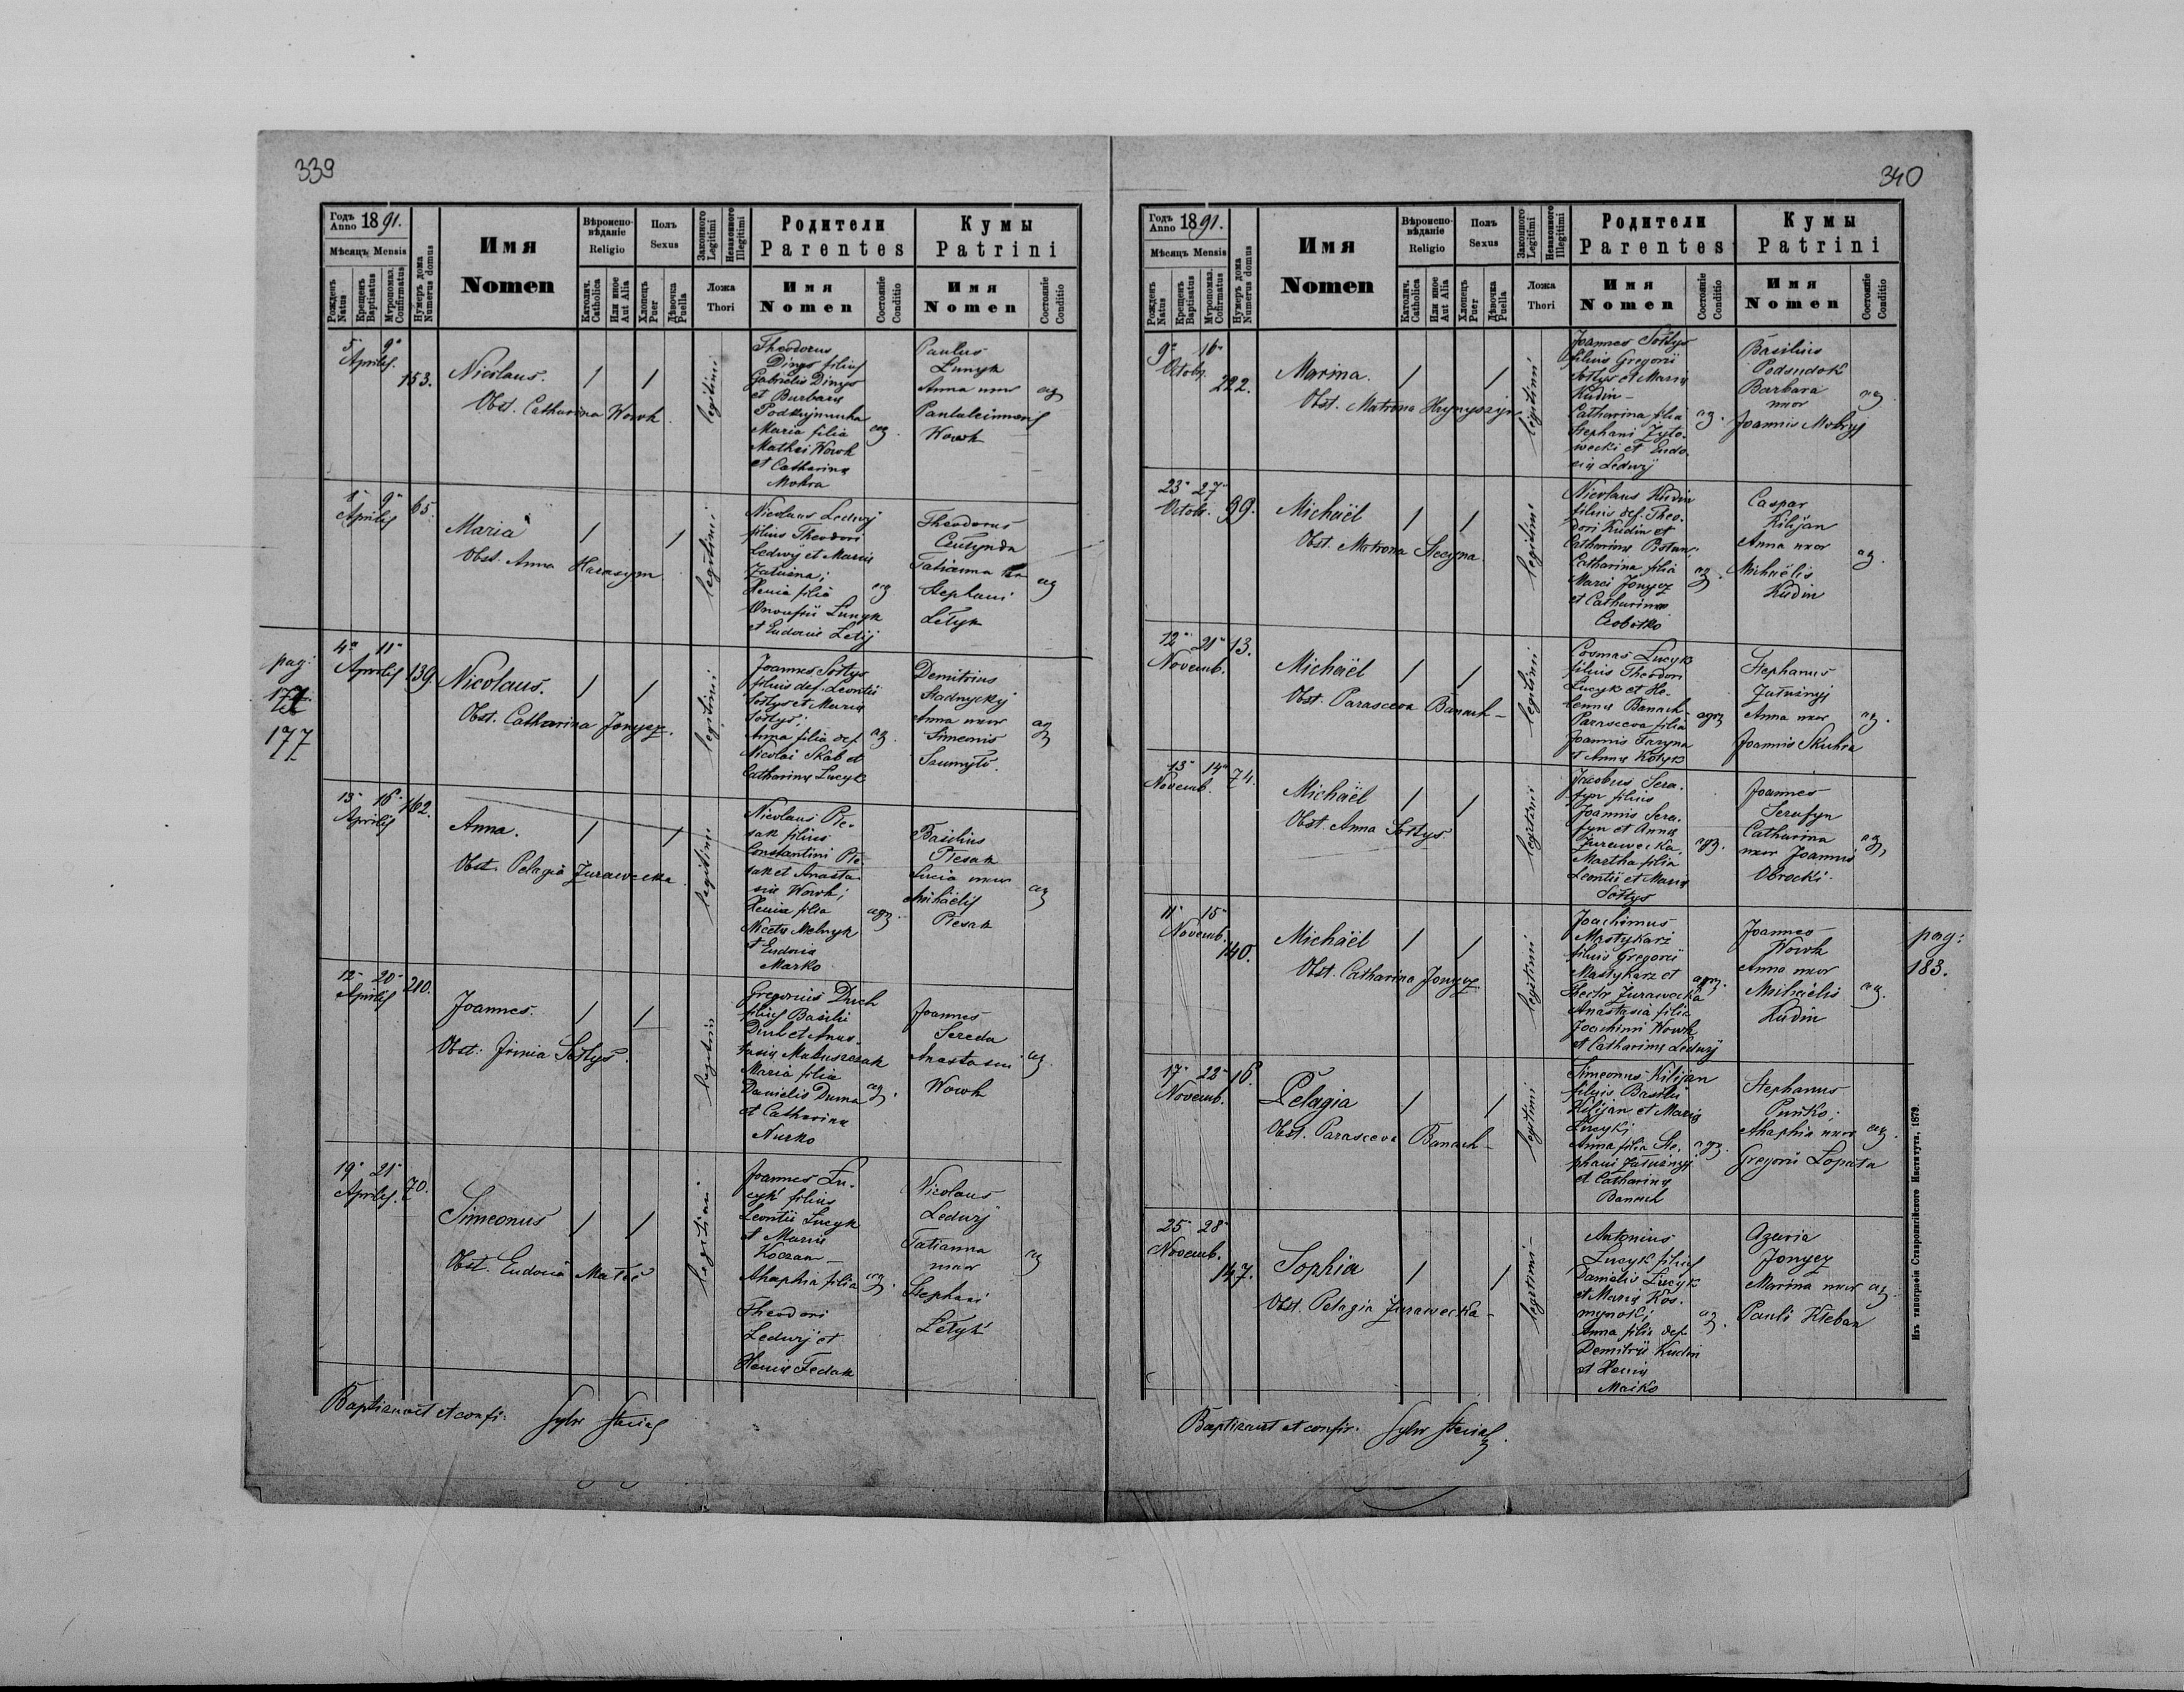 339
Годъ Anno 1891.
Мѣсяцъ Mensis
Рожденъ Natus
Крещенъ Baptisatus
Муропомаз. Confirmatus
Нумеръ дома Numerus domus
Имя
Nomen
Вѣроиспо-
вѣданіе
Religio
Католич. Catholica
Или иное Aut Alia
Полъ
Sexus
Хлопецъ Puer
Дѣвочка Puella
Законного Legitimi
Незаконного Illegitimi
Ложа
Thori
Родители
Parentes
Имя
Nomen
Состояніе Conditio
Кумы
Patrini
Имя
Nomen
Состояніе Conditio
5 9
Aprilis
153.
Nicolaus.
Obst. Catharina Wowk
legitimi
Theodorus
Dinys filius
Gabrielis Dinys
et Barbara
Maria filia
Mathei Wowk
et Catharina
Mokra
ag.
Paulus
Lunyk
Anna uxor
Pantaleimonis
Wowk
ag
8 9
Aprilis
65.
Maria
Obst. Anna Harasym
legitimi
Nicolaus Ledwij
filius Theodori
Ledwij et Maria
Xenia filia
Onoufrii Lunyk
et Eudocia Letij
ag
Theodorus
Tatianna
Stephani
Letyk
ag
pag:
177
4 11
Aprilis
139.
Nicolaus.
Obst. Catharina Jonycz.
legitimi
Joannes Sołtys
filius def. Leontii
Sołtys et Maria
Sołtys;
Anna filia def.
Nicolai Skab et
Catharina Lucyk
ag.
Demitrius
Stadnyckij
Anna uxor
Simeonis
Szumyło.
ag
13 16
Aprilis
162.
Anna.
Obst. Pelagia Żurawecka
legitimi
Nicolaus Ple-
sak filius
Constantini Ple-
sak et Anasta-
sia Wowk;
Xenia filia
Niceta Melnyk
et Eudocia
Marko
agr.
Basilius
Plesak
Lucia uxor
Michaelis
Plesak
ag
12 20
Aprilis
210.
Joannes.
Obst: Irinia Sołtys.
legitimi
Gregorius Duch
filius Basilii
Duch et Anas-
tasia Matuszczak
Maria filia
Danielis Duma
et Catharina
Nurko
ag.
Joannes
Sereda
Anastasia
Wowk
ag.
19 21
Aprilis.
70.
Simeonus
Obst. Eudocia
legitimi
Joannes Lu-
cyk filius
Leontii Lucyk
et Maria
Koczan—
Ahaphia filia
Theodori
Ledwij et
Xenia Fedak
ag.
Nicolaus
Ledwij
Tatianna
uxor
Stephani
Letyk
ag
Baptisavit et confir:
340
Годъ Anno 1891.
Мѣсяцъ Mensis
Рожденъ Natus
Крещенъ Baptisatus
Муропомаз. Confirmatus
Нумеръ дома Numerus domus
Имя
Nomen
Вѣроиспо-
вѣданіе
Religio
Католич. Catholica
Или иное Aut Alia
Полъ
Sexus
Хлопецъ Puer
Дѣвочка Puella
Законного Legitimi
Незаконного Illegitimi
Ложа
Thori
Родители
Parentes
Имя
Nomen
Состояніе Conditio
Кумы
Patrini
Имя
Nomen
Состояніе Conditio
9 16
Octob.
222.
Marina.
Obst. Matrona Hrynyszyn
legitimi
Joannes Sołtys
filius Gregorii
Sołtys et Maria
Kudin—
Catharina filia
Stephani Żyto-
wecki et Eudo-
cia Ledwij
ag.
Basilius
Podsudok
Barbara
uxor
Joannis Mokryj
ag
23 27
Octob.
99.
Michaël
Obst. Matrona Stecyna
legitimi
Nicolaus Kudin
filius def. Theo-
dori Kudin et
Catharina
Catharina filia
Marci Jonycz
et Catharina
Czobotko
ag.
Caspar
Kilijan
Anna uxor
Michaëlis
Kudin
ag.
12 21
Novemb.
13.
Michaël
Obst. Parasceva Banach—
legitimi
Cosmas Lucyk
filius Theodori
Lucyk et He-
lenna Banach-
Parasceva filia
Joannis
et Anna Kotyk
agr.
Stephanus
Anna uxor
Joannis Skuhra
ag.
13 14
Novemb.
74.
Michaël
Obst. Anna Sołtys.
legitimi
Jacobus Sera-
fyn filius
Joannis Sera-
fyn et Anna
Żurawecka,
Martha filia
Leontii et Maria
Sołtys
agr.
Joannes
Serafyn
Catharina
uxor Joannis
Obrocki.
ag,
11 15
Novemb.
140.
Michaël
Obst. Catharina Jonycz
legitimi
Joachimus
Mastykarz
filius Gregorii
Mastykarz et
Żurawecka
Anastasia filia
Joachimi Wowk
et Catharina Ledwij
agr.
Joannes
Wowk
Anna uxor
Michaëlis
Kudin
ag.
pag:
183.
17 22
Novemb.
16.
Pelagia
Obst. Parasceva Banach—
legitimi
Simeonus Kilijan
filius Basilii
Kilijan et Maria
Lucyk;
Anna filia Ste-
phani
et Catharina
Banach
agr.
Stephanus
Puńko;
Ahaphia uxor
Gregorii Łopata
ag.
25 28
Novemb.
147.
Sophia
Obst. Pelagia Żurawecka—
legitimi—
Antonius
Lucyk filius
Danielis Lucyk
et Maria Kos-
mynok;
Anna filia def.
Demitrii Kudin
et Xenia
Maiko
ag.
Azaria
Jonycz
Marina uxor
Pauli Kleban
ag.
Baptizavit et confir.
Изъ типографіи Ставропигійского Института, 1879.